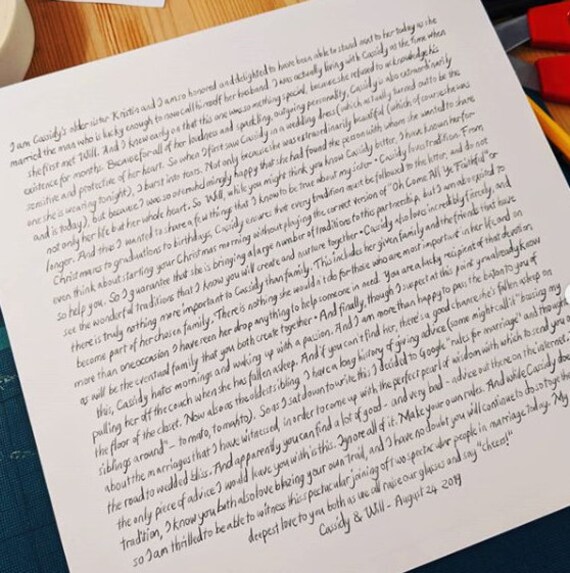 I am Cassidy's older sister Kristin and I am so honored and delighted to have been able to stand next to her today as she
married the man who is lucky enough to now call himself her husband. I was actually living with Cassidy at the time when
she first met Will. And I knew early on that this one was something special, because she refused to acknowledge his
existence for months. Because for all of her loudness and sparkling, outgoing personality, Cassidy is also extraordinarily
sensitive and protective of her heart. So when I first saw Cassidy in a wedding dress (which actually turned out to be the
one she is wearing tonight), I burst into tears. Not only because she was extraordinarily beautiful (which of course she was
and is today), but because I was so overwhelmingly happy that she had found the person with whom she wanted to share
not only her life but her whole heart. So Will, while you might think you know Cassidy better, I have known her for
longer. And thus I wanted to share a few things that I know to be true about my sister • Cassidy runs on tradition. From
Christmases to graduations to birthdays, Cassidy ensures that every tradition must be followed to the letter, and do not
even think about starting your Christmas morning without playing the correct version of "Oh Come All Ye Faithful" or
so help you. So I guarantee that she is bringing a large number of traditions to this partnership, but I am also excited to
see the wonderful traditions that I know you will create and nurture together • Cassidy also loves incredibly fiercely, and
there is truly nothing more important to Cassidy than family. This includes her given family and the friends that have
become part of her chosen family. There is nothing she wouldn't do for those who are most important in her life, and on
more than one occasion I have seen her drop anything to help someone in need. You are a lucky recipient of that devotion,
as will be the eventual family that you both create together • And finally, though I suspect at this point you already know
this, Cassidy hates mornings and waking up with a passion. And I am more than happy to pass the baton to you of
pulling her off the couch when she has fallen asleep. And if you can't find her, there's a good chance she's fallen asleep on
the floor of the closet. Now also as the oldest sibling, I have a long history of giving advice (some might call it "bossing my
siblings around" - tomato, tomahto). So as I sat down to write this I decided to Google "rules for marriage" and thought
about the marriages that I have witnessed, in order to come up with the perfect pearl of wisdom with which to send you on
the road to wedded bliss. And apparently you can find a lot of good - and very bad - advice out there on the internet.
the only piece of advice I would have you with is this. Ignore all of it. Make your own rules. And while Cassidy does
tradition, I know you both also love blazing your own trail, and I have no doubt you will continue to do so together
so I am thrilled to be able to witness this spectacular joining of two spectacular people in marriage today. My
deepest love to you both as we all raise our glasses and say "cheers!"
Cassidy & Will - August 24 2019